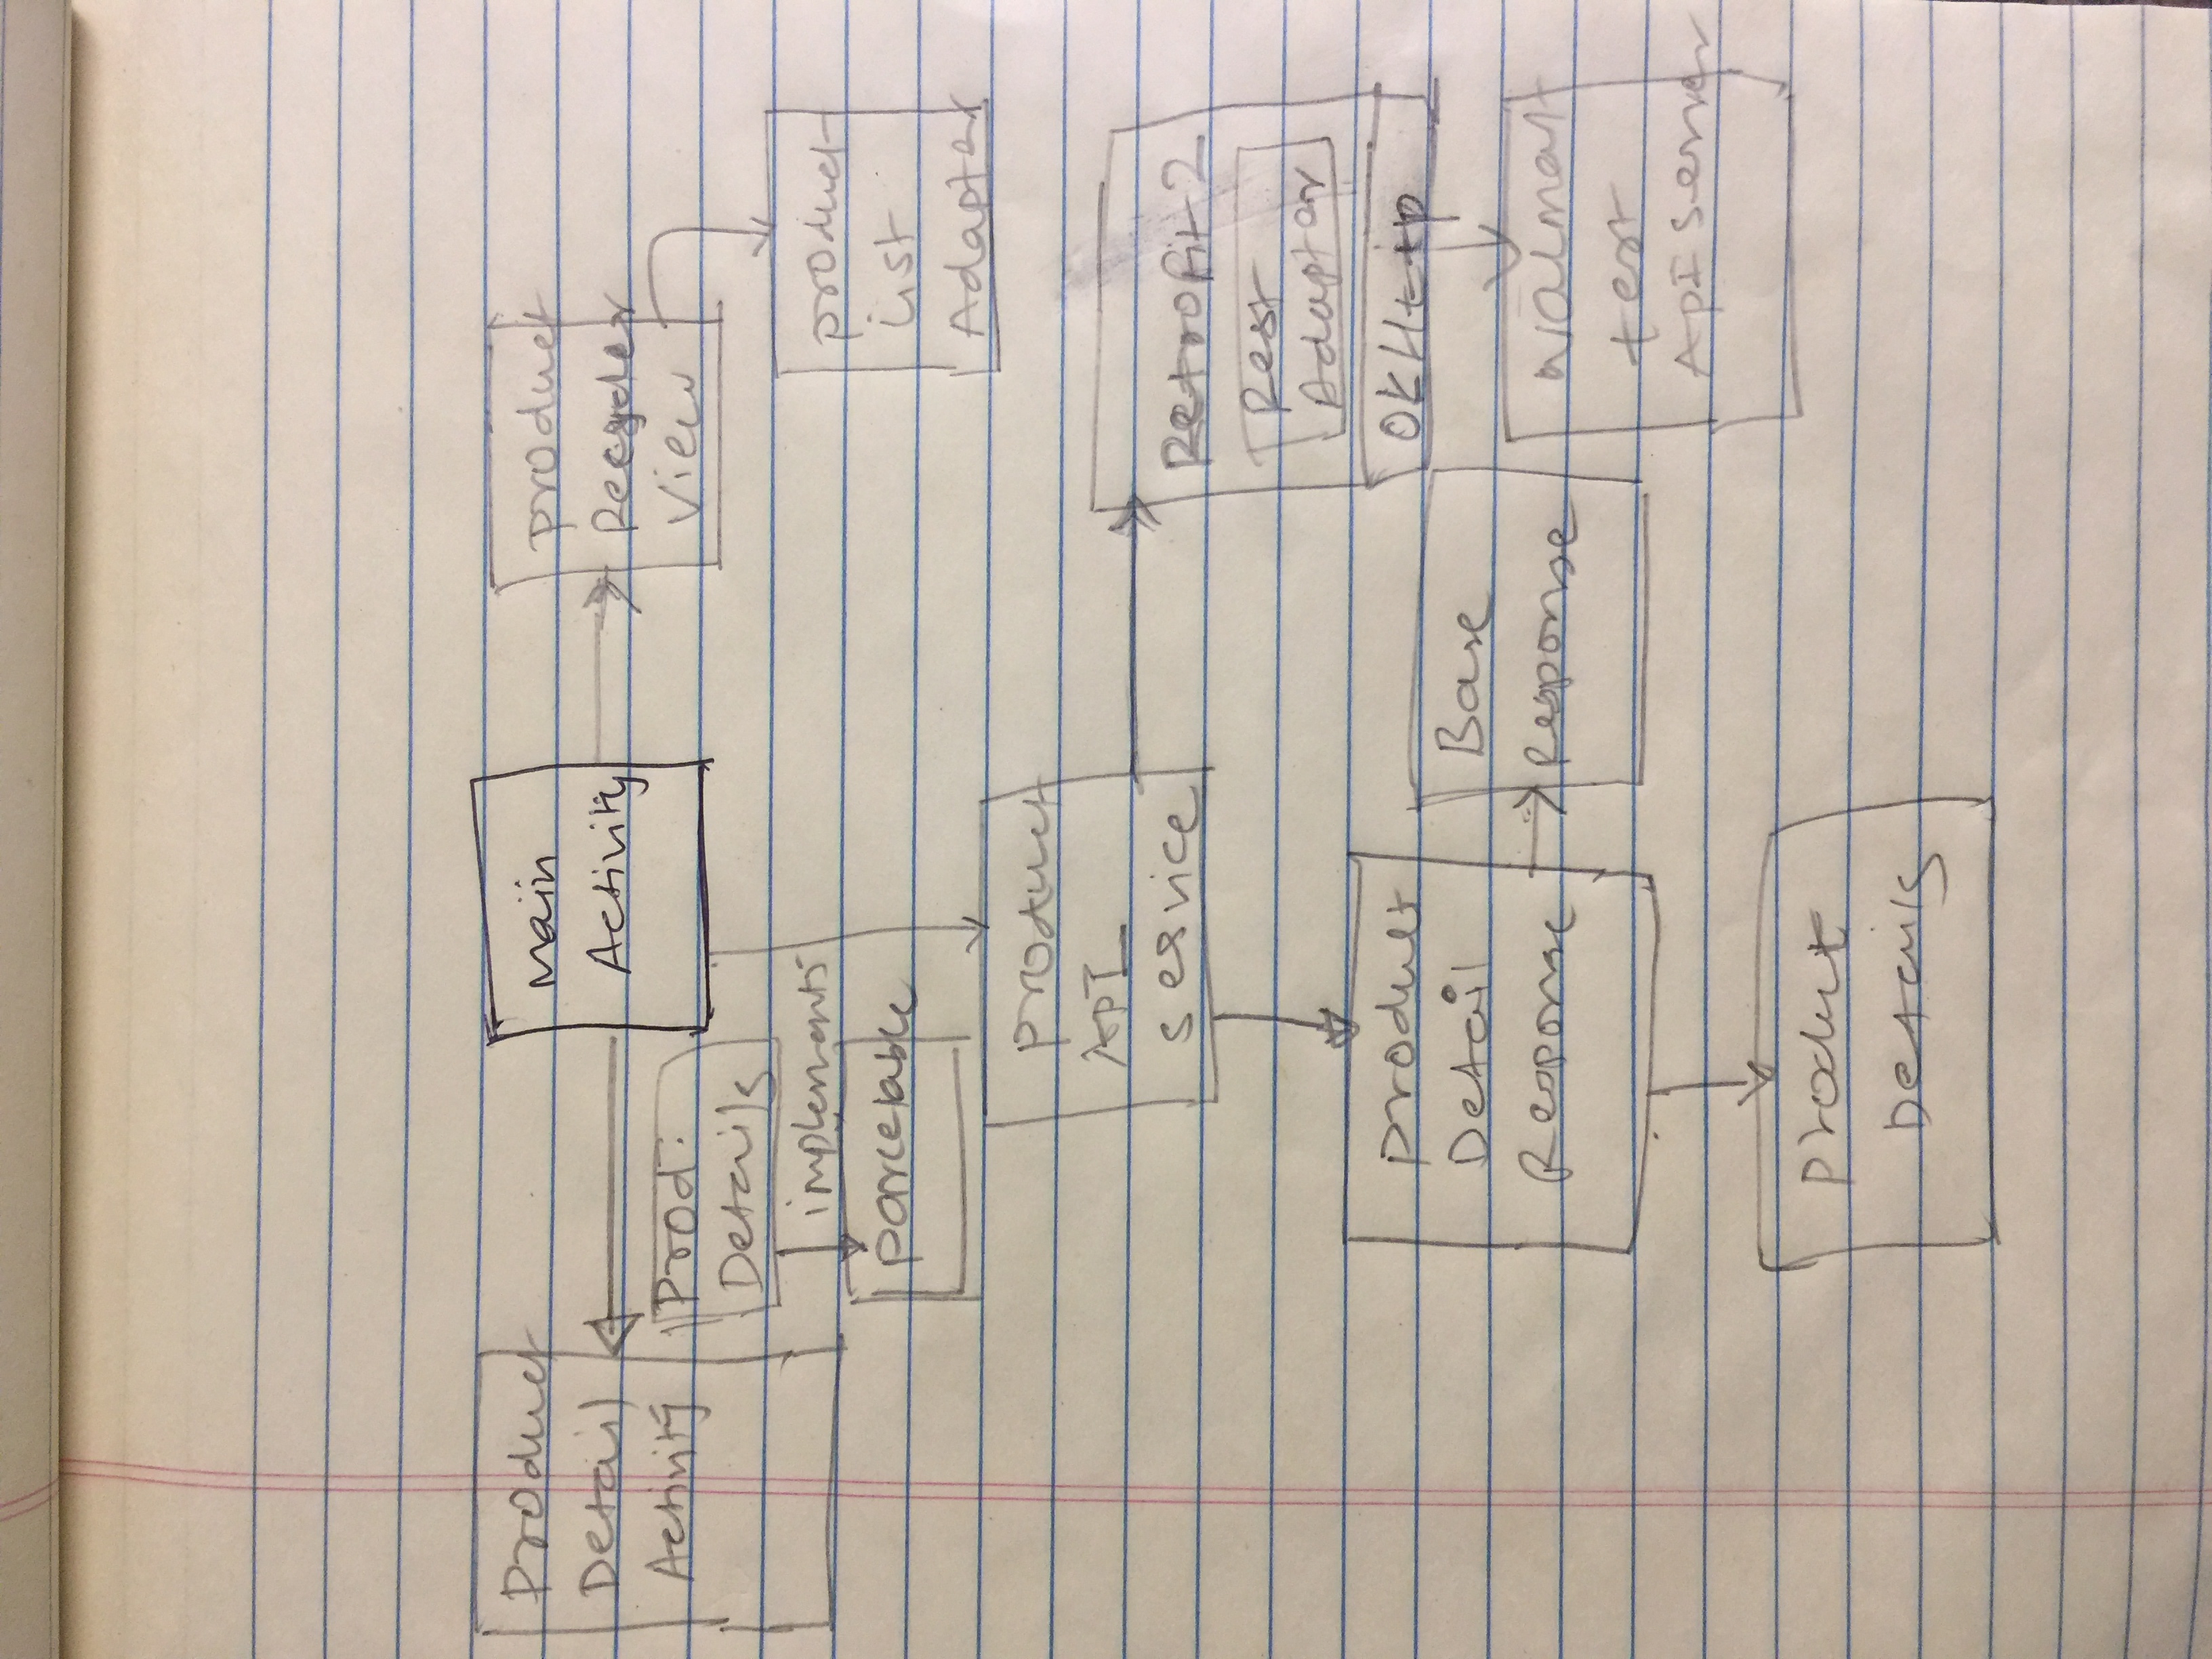 Product
Detail
Activity
Main
Activity
product
Recycler
View
Prod.
Details
implements
parcelable
product
List
Adapter
product
API
service
Retrofit 2
Rest
Adapter
OKHttp
product
Detail
Response
Base
Response
walmart
test
API Server
product
Details